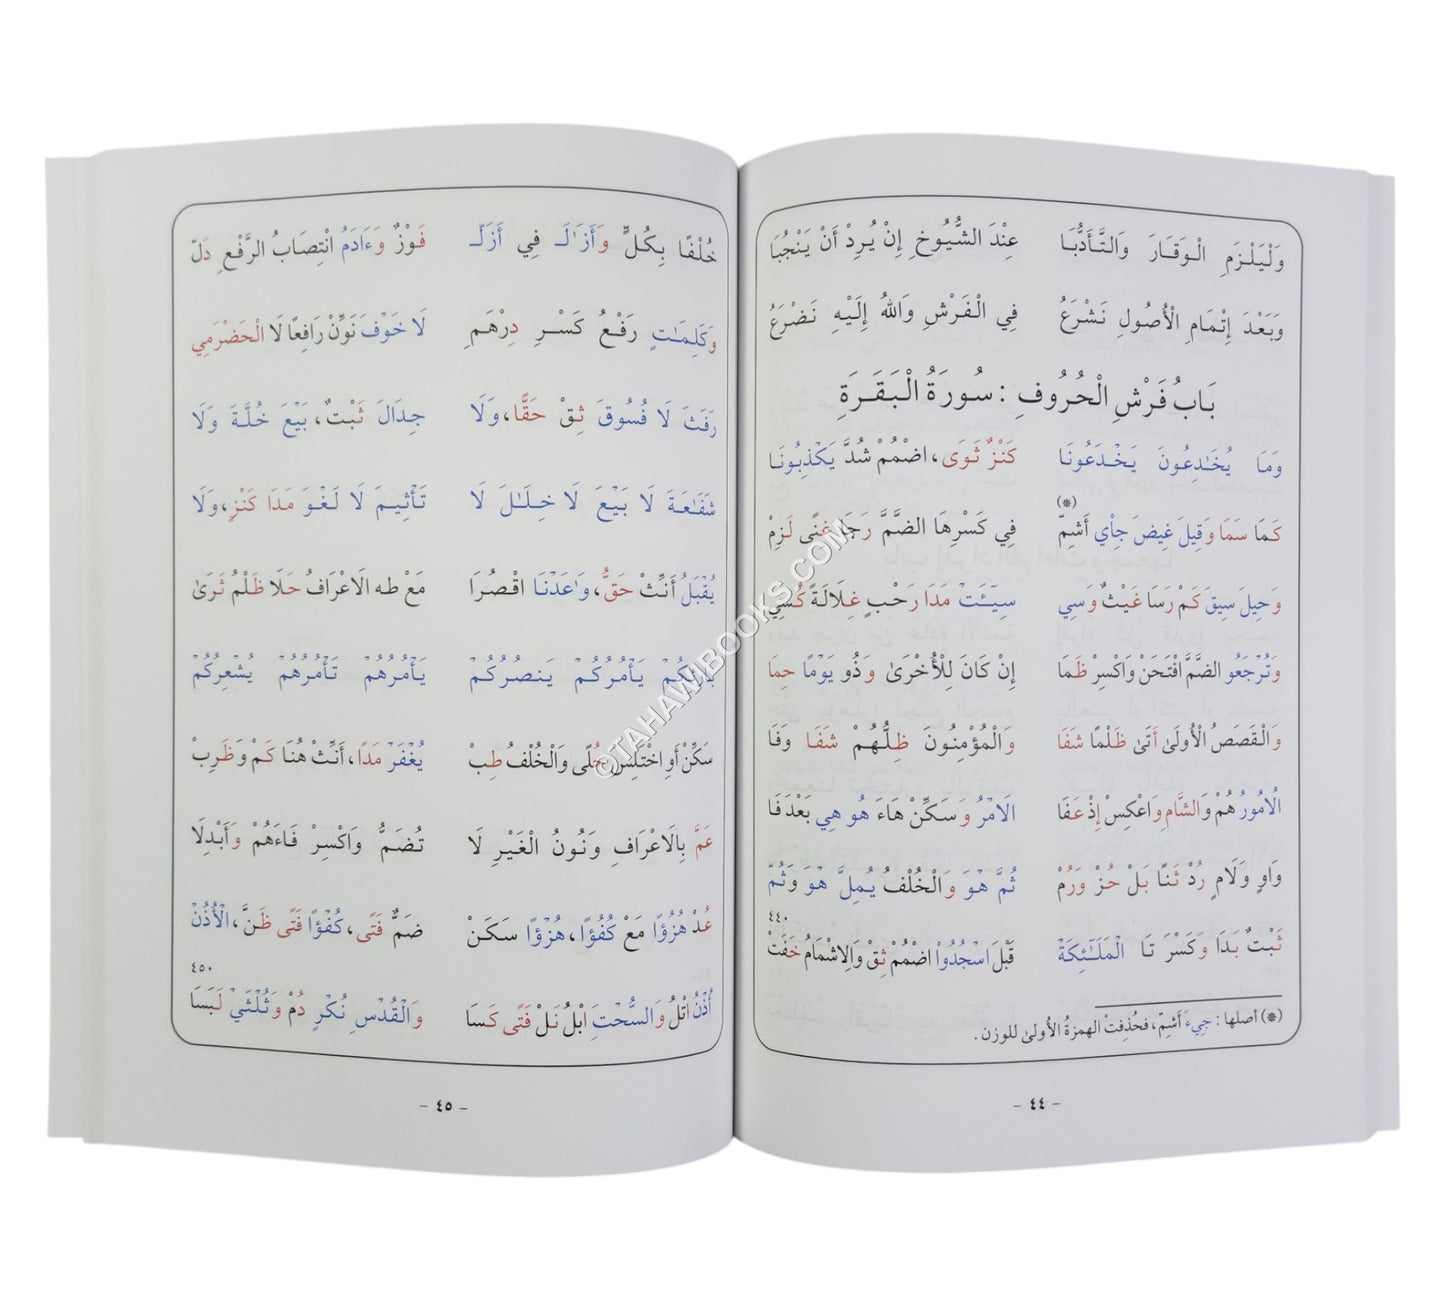 وَلْيَلْزَمِ الْوَقَارَ وَالتَّأَدُّبَا عِنْدَ الشُّيُوخِ إِنْ يُرِدْ أَنْ يَنْجُبَا
وَبَعْدَ إِتْمَامِ الْأُصُولِ نَشْرَعُ فِي الْفَرْشِ وَاللهُ إِلَيْهِ نَضْرَعُ
بَابُ فَرْشِ الْحُرُوفِ : سُورَةُ الْبَقَرَةِ
وَمَا يُخَٰدِعُونَ يَخْدَعُونَا كَنْزٌ ثَوَى، اضْمُمْ شُدَّ يَكْذِبُونَا
(*)
كَمَا سَمَا وَقِيلَ غِيضَ جِاْي أَشِمّ فِي كَسْرِهَا الضَّمَّ رَجَا غِنًى لَزِمْ
وَحِيلَ سِيقَ كَمْ رَسَا غَيْثٌ وَسِي سِيـَٔتْ مَدَا رَحْبٍ غِلَالَةً كُسِي
وَتُرْجَعُو الضَّمَّ افْتَحَنْ وَاكْسِرْ ظَمَا إِنْ كَانَ لِلْأُخْرَىٰ وَذُو يَوْمًا حِمَا
وَالْقَصَصُ الْأُولَىٰ أَتَىٰ ظَلْمًا شَفَا وَالْمُؤْمِنُونَ ظِلُّهُمْ شَفَا وَفَا
الُامُورُ هُمْ وَالشَّامِ وَاعْكِسْ إِذْ عَفَا الَامْرُ وَسَكِّنْ هَاءَ هُو هِي بَعْدَ فَا
وَاوٍ وَلَامٍ رُدْ ثَنًا بَلْ حُزْ وَرُمْ ثُمَّ هْوَ وَالْخُلْفُ يُمِلَّ هْوَ وَثُمّ
٤٤٠
ثَبْتٌ بَدَا وَكَسْرَ تَا الْمَلَٰٓئِكَةْ قَبْلَ اسْجُدُواْ اضْمُمْ ثِقْ وَالِاشْمَامُ خَفَتْ
(*) أصلها : جِيءَ أَشِمّ، فحُذِفتْ الهمزةُ الأُولىٰ للوزن .
– ٤٤ –
خُلْفًا بِكُلٍّ وَأَزَالَـ فِي أَزَلّـ فَوْزٌ وَءَادَمُ انْتِصَابُ الرَّفْعِ دَلّ
وَكَلِمَٰتٍ رَفْعُ كَسْرِ دِرْهَمِ لَا خَوْفَ نَوِّنْ رَافِعًا لَا الْحَضْرَمِي
رَفَثَ لَا فُسُوقَ ثِقْ حَقًّا، وَلَا جِدَالَ ثَبْتٌ، بَيْعَ خُلَّةَ وَلَا
شَفَٰعَةَ لَا بَيْعَ لَا خِلَٰلَ لَا تَأْثِيمَ لَا لَغْوَ مَدَا كَنْزٍ، وَلَا
يُقْبَلُ أَنِّثْ حَقُّ، وَٰعَدْنَا اقْصُرَا مَعْ طه الَاعْرَافُ حَلَا ظَلْمُ ثَرَىٰ
بَارِئْكُمْ يَأْمُرْكُمُ يَنصُرْكُمُ يَأْمُرْهُمُ تَأْمُرْهُمُ يُشْعِرْكُمُ
سَكِّنْ أَوِ اخْتَلِسْ حُلًى وَالْخُلْفُ طِبْ يُغْفَرْ مَدًا، أَنِّثْ هُنَا كَمْ وَظَرِبْ
عَمَّ بِالَاعْرَافِ وَنُونُ الْغَيْرِ لَا تُضَمُّ وَاكْسِرْ فَاءَهُمْ وَأَبْدِلَا
عُدْ هُزُؤًا مَعْ كُفُؤًا، هُزْؤًا سَكَنْ ضَمٌّ فَتًى، كُفْؤًا فَتًى ظَنَّ، الْأُذْنُ
٤٥٠
أُذْنُ اتْلُ وَالسُّحْتَ ابْلُ نَلْ فَتًى كَسَا وَالْقُدْسِ نُكْرٍ دُمْ وَثُلْثَيْ لَبَسَا
– ٤٥ –
©TAHAWIBOOKS.COM